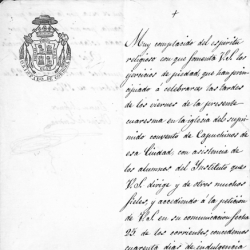 Muy complacido del espíritu
religioso con que fomenta V.S. los
ejercicios de piedad que han princi-
piado á celebrarse las tardes
de los viernes de la presente
cuaresma en la iglesia del supri-
mido convento de Capuchinos de
esa Ciudad con asistencia de
los alumnos del Instituto que
V.S. dirige y de otros muchos
fieles, y accediendo á la petición
de V.S. en su comunicacion fecha
24 de los corrientes, concedemos
cuarenta dias de indulgencia